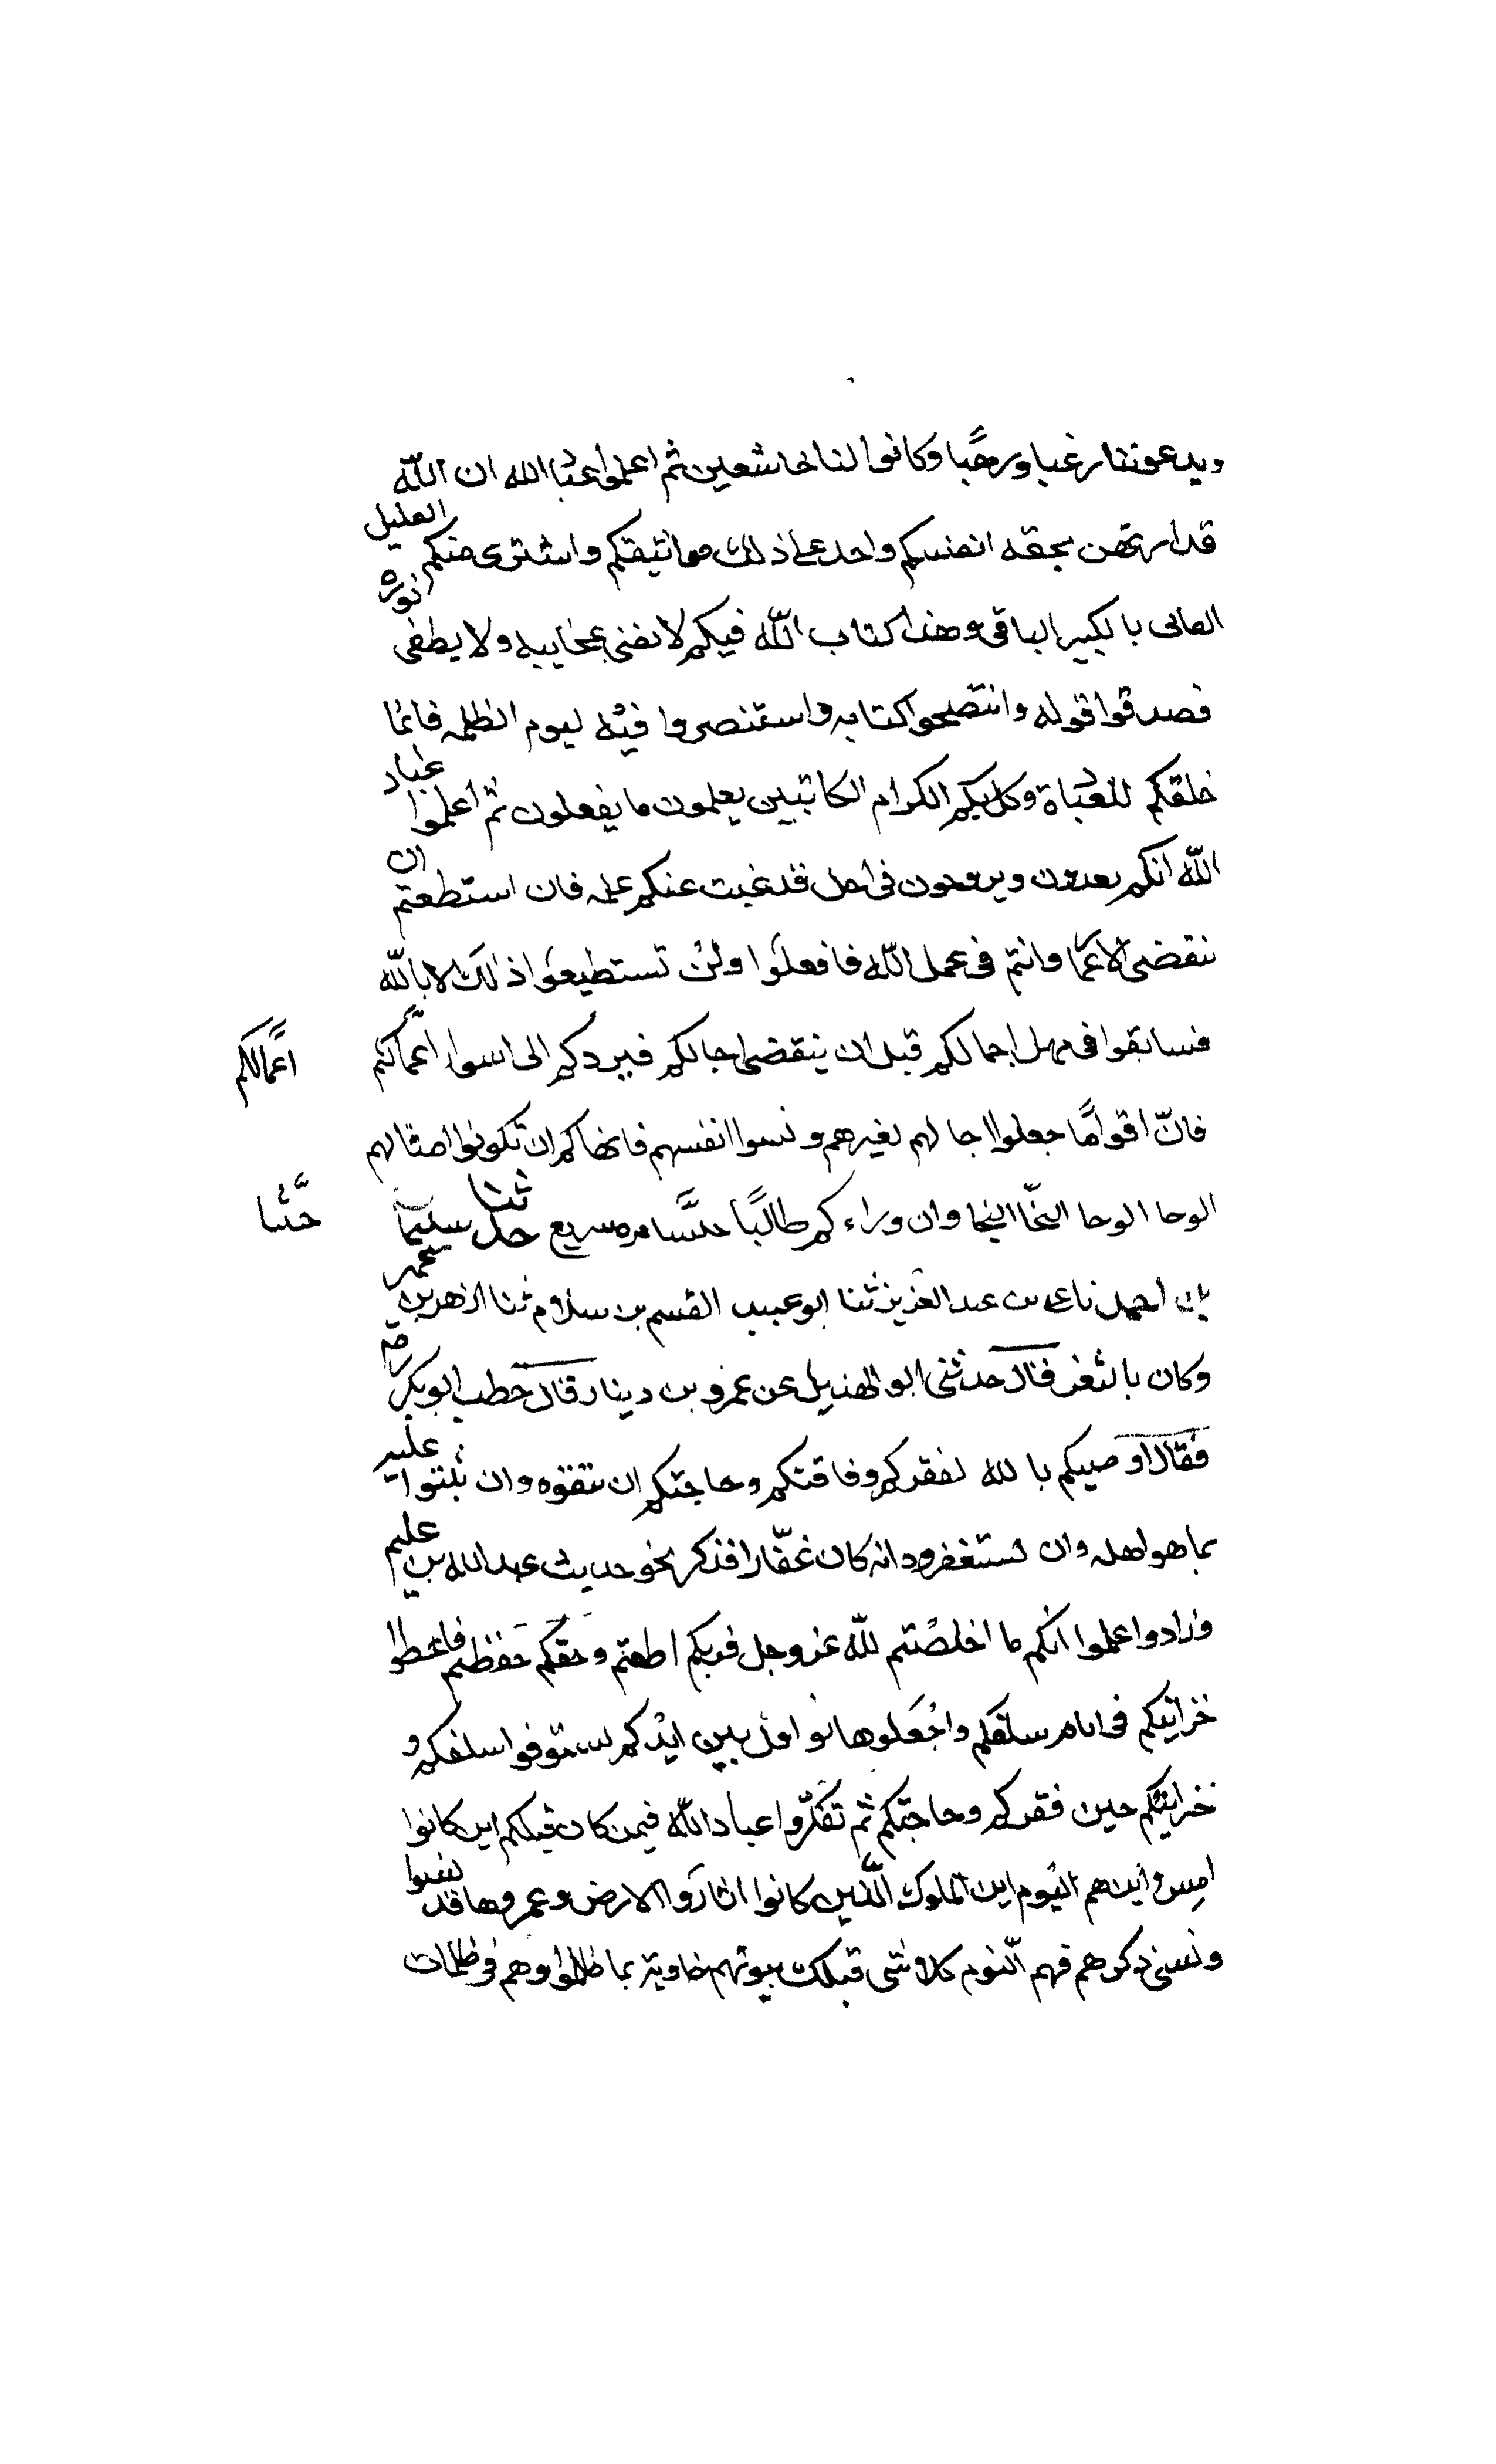 ويدعوننا رغبا ورهبا وكانوا لنا خاشعين ثم اعلموا عباد الله ان الله
قد ارتهن بحقه انفسكم واخذ على ذلك مواثيقكم واشترى منكم القليل
الفانى بالكبير الباقى وهذا كتاب الله فيكم لا تفنى عجايبه ولا يطفى نوره
فصدقوا قوله وانتصحوا كتابه واستنصروا فيه ليوم الظلمه فانما
خلقكم للعبادة وكل بكم الكرام الكاتبين يعلمون ما يفعلون ثم اعلموا عباد
الله انكم تعدون وتروحون فى اجل قد غيبت عنكم علمه فان استطعتم ان
تنقضى الاعما وانتم فى عمل الله فافعلوا ولن تستطيعوا ذلك الا بالله
فسابقوا فى مهل اجالكم قبل ان ينقضى اجالكم فيردكم الى اسوا اعمالكم اعمالكم
فان اقواما جعلوا اجالهم لغيرهم ونسوا انفسهم فانهاكم ان تكونوا امثالهم
الوحا الوحا النجا النجا وان وراءكم طالبا حثيثا مره سريع حدثنا سليمان حثيثا
بن احمد نا على بن عبد العزيز ثنا ابو عبيد القسم بن سلام ثنا ازهر بن عمير
وكان بالثغر فقال حدثنى ابو الهذيل عن عمرو بن دينار قال خطب ابو بكر رضه
فقال اوصيكم بالله لفقركم وفاقتكم وحاجتكم ان تتقوه وان تثنوا عليه
بما هو اهله وان تستغفروه انه كان غفارا فذكر نحو حديث عبد الله بن عليم
وزاد واعلموا انكم ما اخلصتم لله عز وجل فربكم اطعتم وحقكم حفظتم فاعطوا
خرايبكم فى ايام سلفكم واجعلوها نوافل بين ايدكم تستوفوا سلفكم و
خرايبكم حين فقركم وحاجتكم ثم تفكروا عباد الله فيمن كان قبلكم اين كانوا
امس واين هم اليوم اين الملوك الذين كانوا اثاروا الارض وعمروها قد نسوا
ونسى ذكرهم فهم اليوم كلا شى فتلك بيوتهم خاوية بما ظلموا وهم فى ظلمات